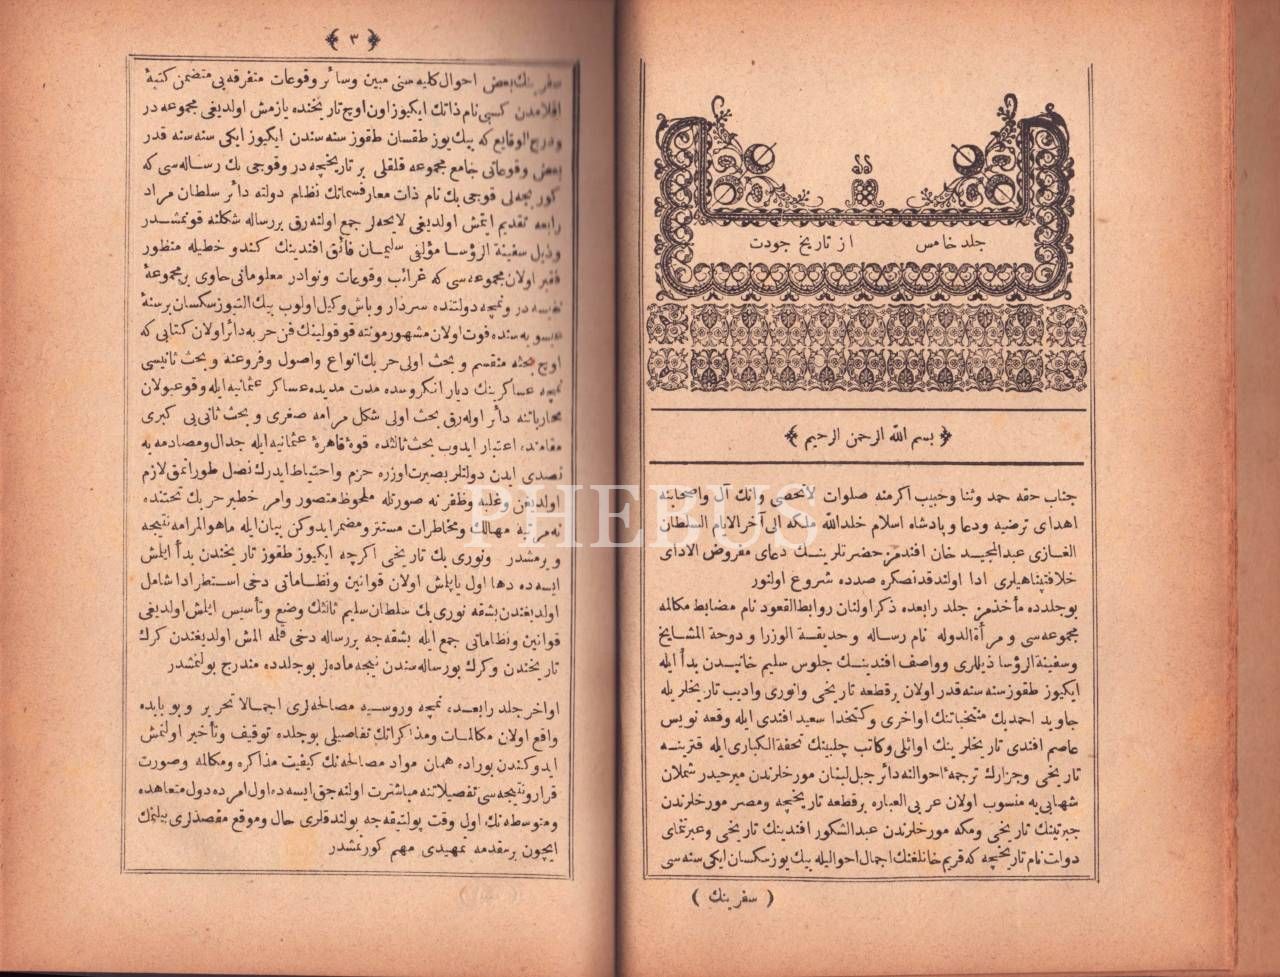 جلد خامس از تاریخ جودت
بسم الله الرحمن الرحیم
جناب حقه حمد وثنا وحبیب اکرمنه صلوات لاتحصی وانك آل واصحابنه
اهدای ترضیه ودعا و پادشاه اسلام خلدالله ملكه الی آخر الایام السلطان
الغازی عبدالمجید خان افندمز حضرتلرینك دعای مفروض الادای
خلافتپناهیلری ادا اولندقدنصکره صدده شروع اولنور
بوجلدده مأخذمز جلد رابعده ذکر اولنان روابط العقود نام مضابط مکالمه
مجموعه سی و مرأة الدوله نام رساله و حدیقة الوزرا و دوحة المشایخ
وسفینة الرؤسا ذیللری وواصف افندینك جلوس سلیم خانیدن بدأ ایله
ایکیوز طقوز سنه سنه قدر اولان بر قطعه تاریخی وانوری وادیب تاریخلریله
جاوید احمد بك منتخباتنك اواخری وکتخدا سعید افندی ایله وقعه نویس
عاصم افندی تاریخلرینك اوائلی وکاتب چلبینك تحفة الکباری ایله
تاریخی وجزارك ترجمۀ احوالنه دائر جبل لبنان مورخلرندن میرحیدر شملان
شهابی یه منسوب اولان عربی العباره بر قطعه تاریخچه ومصر مورخلرندن
جبرتینك تاریخی ومکه مورخلرندن عبدالشکور افندینك تاریخی وعبرتنمای
دولت نام تاریخچه که قریم خانلغنك اجمال احوالیله بیك یوز سکسان ایکی سنه سی
( سفرینك )
PHEBUS
﴿ ٣ ﴾
سفرینك بعض احوال کلیه سنی مبین وسائر وقوعات متفرقه یی متضمن کتبۀ
اقلامدن کسبی نام ذاتك ایکیوز اون اوچ تاریخنده یازمش اولدیغی مجموعه در
الوقایع که بیك یوز طقسان طقوز سنه سندن ایکیوز ایکی سنه سنه قدر
بعض وقوعاتی جامع مجموعه قلقلی بر تاریخچه در وقوجی بك رساله سی که
کوریجه لی قوجی بك نام ذات معارفسماتك نظام دولته دائر سلطان مراد
رابعه تقدیم ایتمش اولدیغی لایحه لر جمع اولنه رق بر رساله شکلنه قونمشدر
وذیل سفینة الرؤسا مؤلفی سلیمان فائق افندینك کندو خطیله منظور
فقیر اولان مجموعه سی که غرائب وقوعات ونوادر معلوماتی حاوی بر مجموعۀ
نفیسه در ونمچه دولتنده سردار وباش وکیل اولوب بیك التیوز سکسان بر سنۀ
عیسویه سنده فوت اولان مشهور مونته قوقولینك فن حربه دائر اولان کتابی که
اوچ بحثه منقسم و بحث اولی حربك انواع واصول وفروعنه و بحث ثانیسی
نمچه عساکرینك دیار انکروسده مدت مدیده عساکر عثمانیه ایله وقوعبولان
محارباتنه دائر اوله رق بحث اولی شکل مرامه صغری و بحث ثانی یی کبری
مقامنده اعتبار ایدوب بحث ثالثده قوۀ قاهرۀ عثمانیه ایله جدال ومصادمه یه
تصدی ایدن دولتلر بصیرت اوزره حزم واحتیاط ایدرك نصل طورانمق لازم
اولدیغن وغلبه وظفر نه صورتله ملحوظ متصور وامر خطیر حربك تحتنده
نه مرتبه مهالك ومخاطرات مستتر ومضمر ایدوکن بیان ایله ماهو المرامه نتیجه
ویرمشدر ونوری بك تاریخی اکرچه ایکیوز طقوز تاریخندن بدأ ایلمش
ایسه ده دها اول یاپلمش اولان قوانین ونظاماتی دخی استطرادا شامل
اولدیغندن بشقه نوری بك سلطان سلیم ثالثك وضع وتأسیس ایلمش اولدیغی
قوانین ونظاماتی جمع ایله بشقه جه بر رساله دخی قلمه المش اولدیغندن کرك
تاریخندن وکرك بو رساله سندن نیجه ماده لر بوجلدده مندرج بولنمشدر
اواخر جلد رابعده نمچه وروسیه مصالحه لری اجمالا تحریر و بو بابده
واقع اولان مکالمات ومذاکراتك تفاصیلی بوجلده توقیف وتأخیر اولنمش
ایدوکندن بوراده همان مواد مصالحه نك کیفیت مذاکره ومکالمه وصورت
قرار ونتیجه سی تفصیلاتنه مباشرت اولنه جق ایسه ده اول امرده دول متعاهده
ومتوسطه نك اول وقت پولتیقه جه بولندقلری حال وموقع مقصدلری بیلنمك
ایچون بر مقدمه تمهیدی مهم کورنمشدر